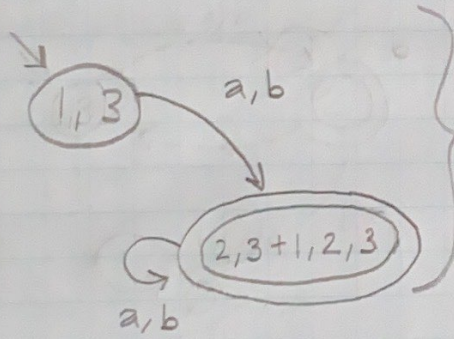 1, 3
a,b
2,3+1,2,3
a,b